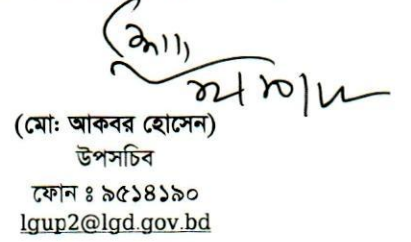 (মোঃ আকবর হোসেন)
উপসচিব
ফোন ঃ ৯৫১৪১৯০
lgup2@lgd.gov.bd